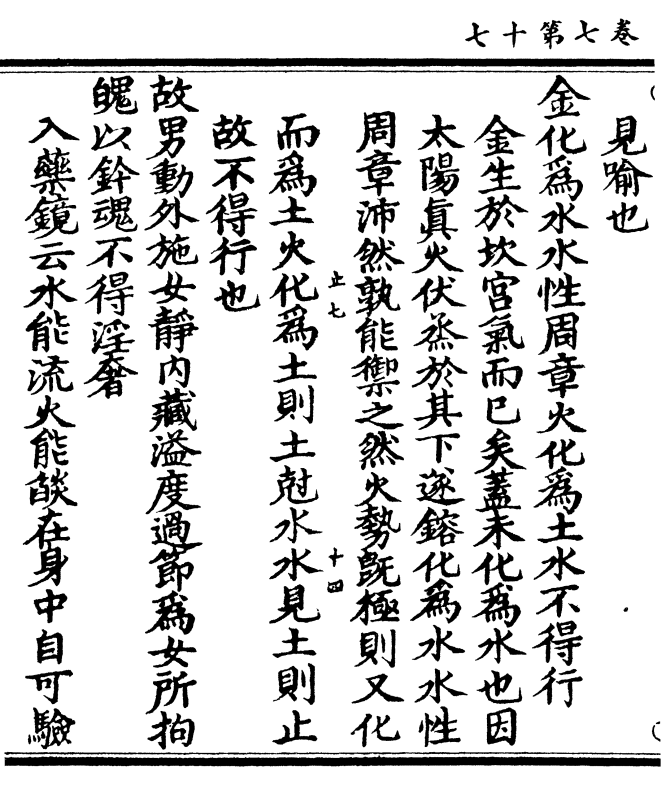 七十第七卷
見喻也
金化爲水水性周章火化爲土水不得行
金生於坎宮氣而已矣蓋未化爲水也因
太陽眞火伏烝於其下遂鎔化爲水水性
周章沛然孰能禦之然火勢旣極則又化
止七
十四
而爲土火化爲土則土尅水水見土則止
故不得行也
故男動外施女靜內藏溢度過節爲女所拘
魄以鈐魂不得淫奢
入藥鏡云水能流火能燄在身中自可驗